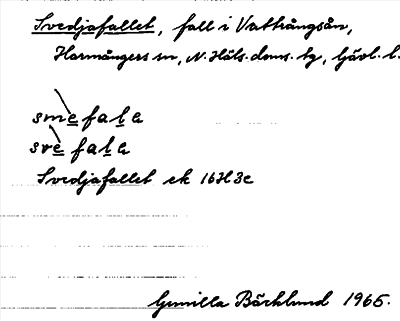 Svedjafallet, fall i Vattrångsån,
Harmångers sn, N. Häls. doms. tg, Gävl. l.
smefala
svefala
Svedjafallet ek 16H3c
Gunilla Bäcklund 1965.